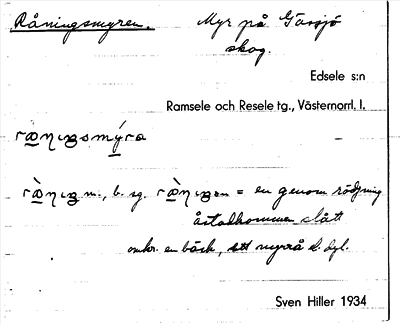 Råningsmyren.
Myr på Gåssjö
skog.
Edsele s:n
Ramsele och Resele tg., Västernorrl. l.
råṇiŋsmýra
rå̀ṇiŋ m., b. sg. rå̀ṇiŋen = en genom rödjning
åstadkommen slått
omkr. en bäck, ett myrrå o. dyl.
Sven Hiller 1934